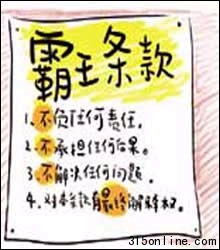 霸王条款
1、不负任何责任.
2、不承担任何后果。
3、不解决任何问题.
4、对本条款有最终解释权。
315online.com